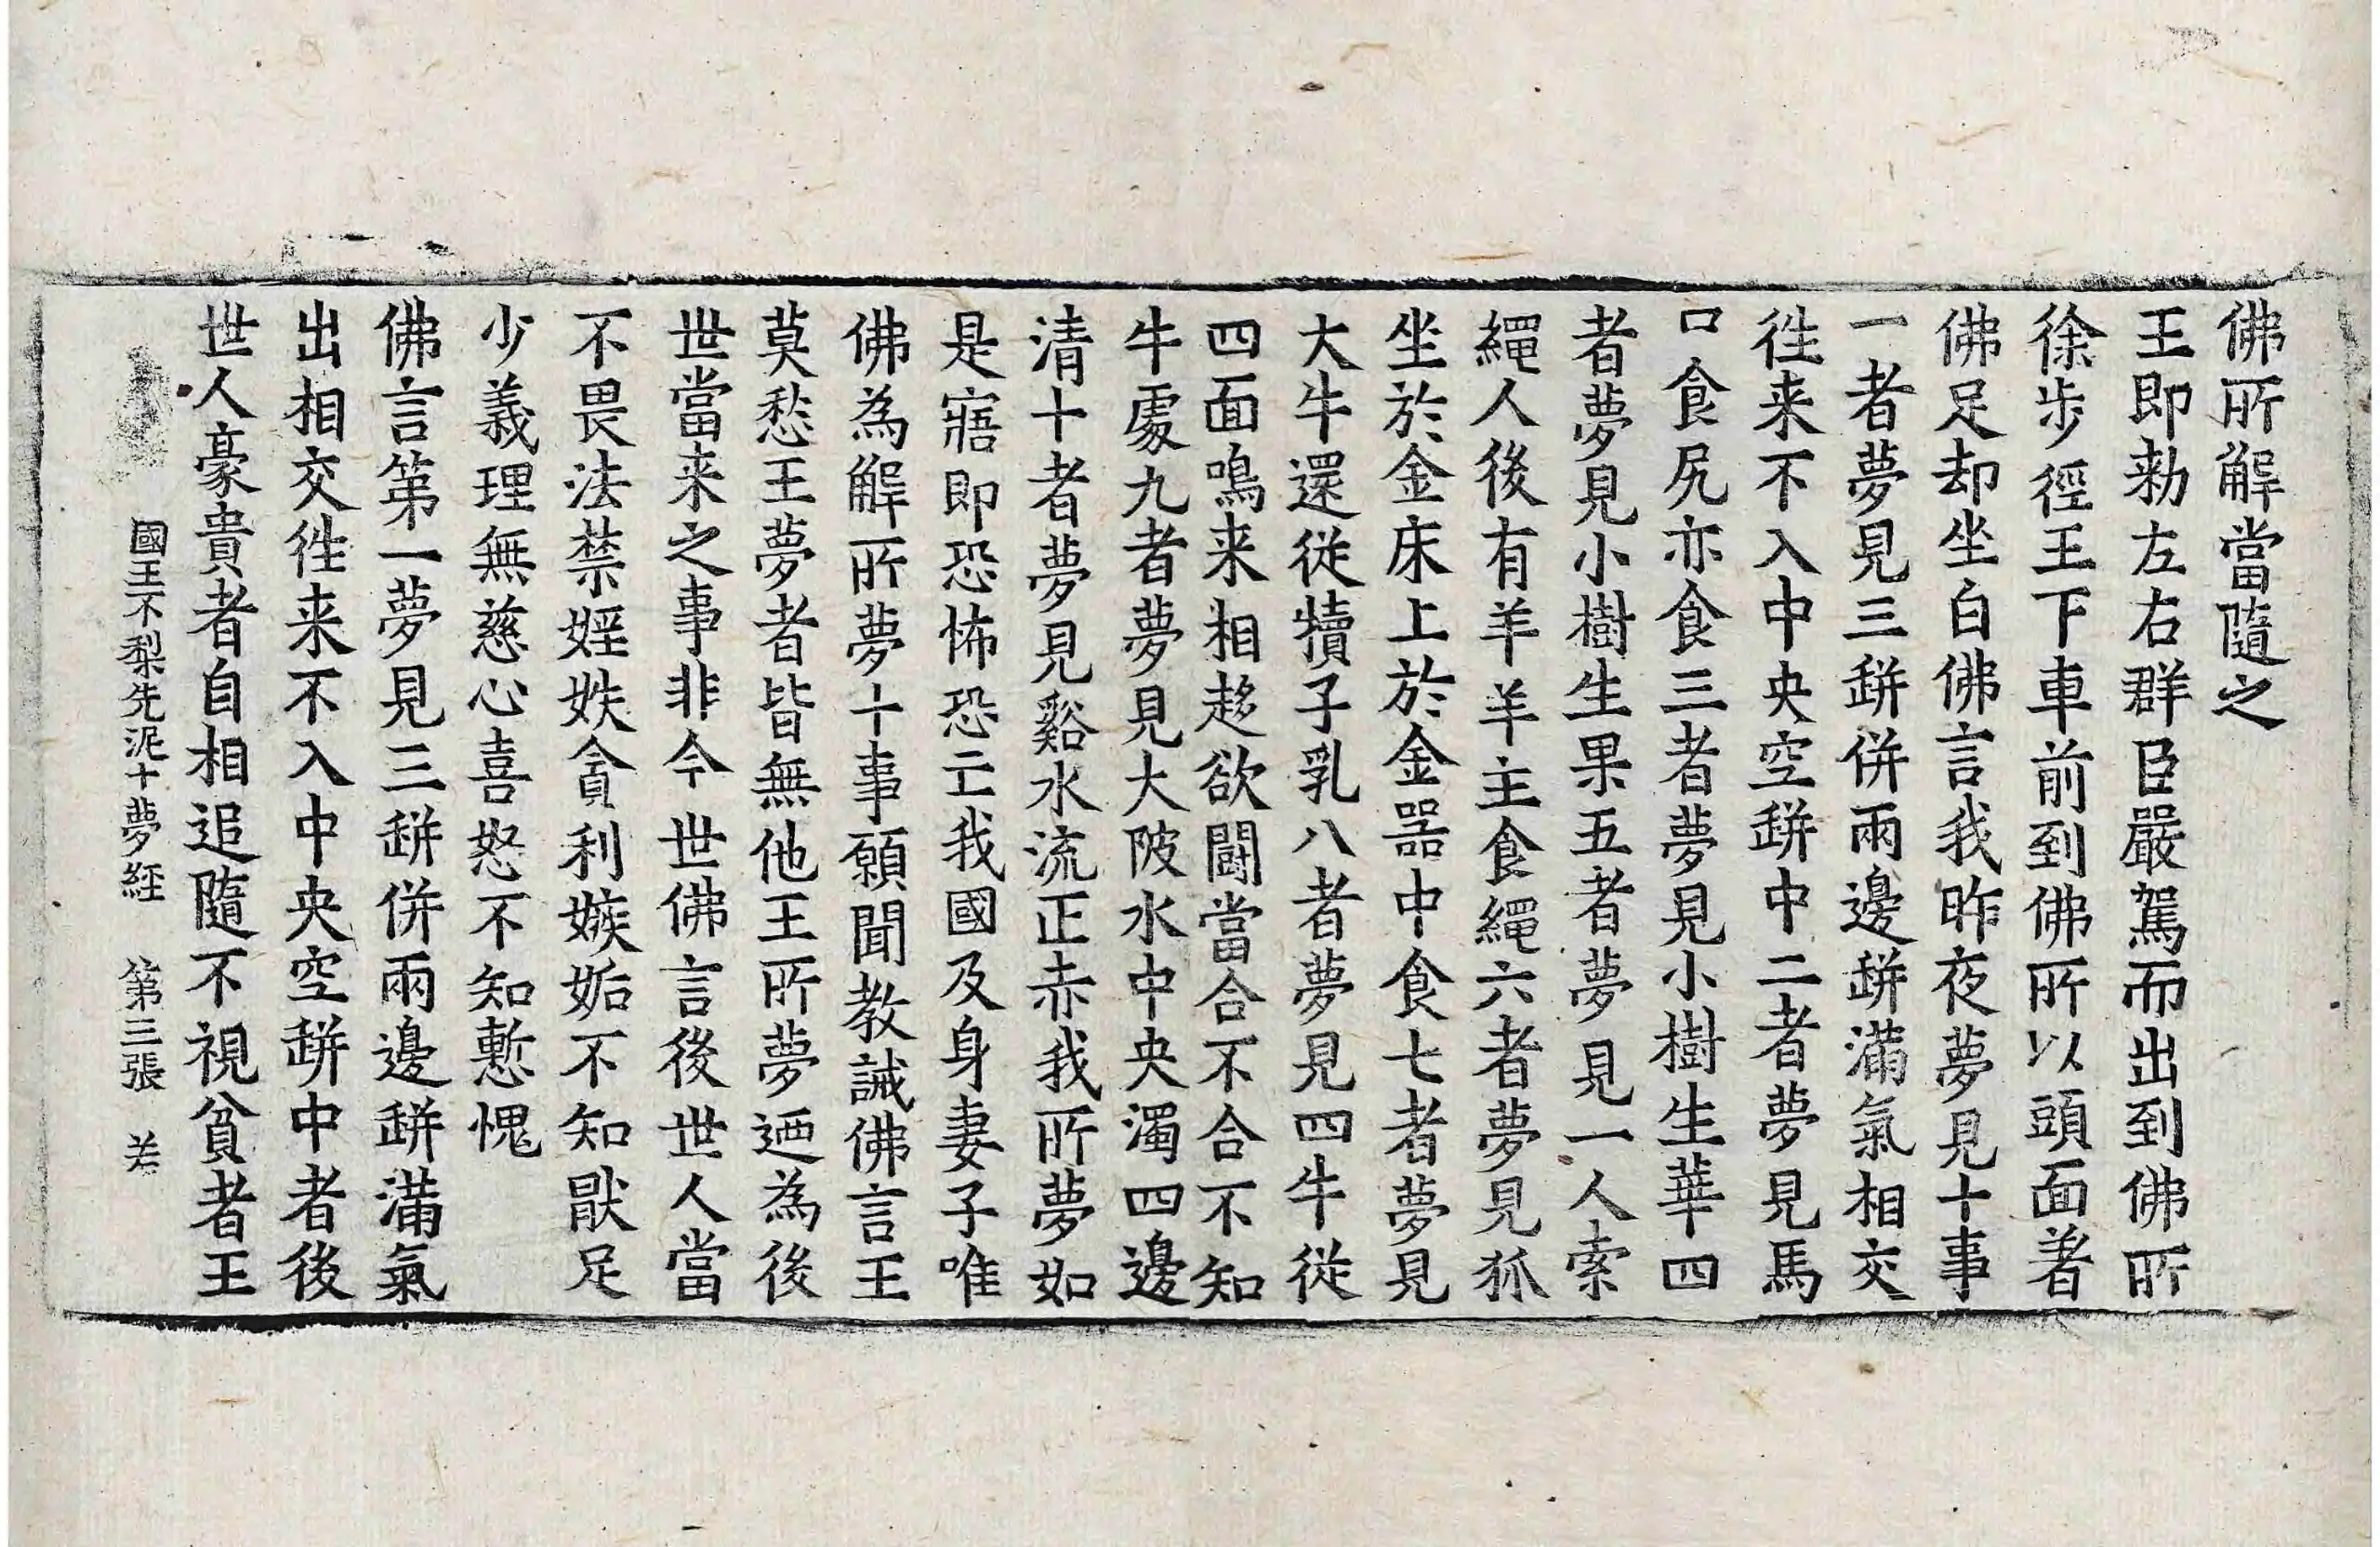 佛所解當隨之
王即勑左右群臣嚴駕而出到佛所
徐步徑王下車前到佛所以頭面著
佛足却坐白佛言我昨夜夢見十事
一者夢見三缾併兩邊缾滿氣相交
徃来不入中央空缾中二者夢見馬
口食尻亦食三者夢見小樹生華四
者夢見小樹生果五者夢見一人索
繩人後有羊羊主食繩六者夢見狐
坐於金床上於金器中食七者夢見
大牛還從犢子乳八者夢見四牛從
四面鳴来相趍欲鬪當合不合不知
牛處九者夢見大陂水中央濁四邊
清十者夢見谿水流正赤我所夢如
是寤即恐怖恐亡我國及身妻子唯
佛為解所夢十事願聞教誡佛言王
莫愁王夢者皆無他王所夢迺為後
世當来之事非今世佛言後世人當
不畏法禁婬妷貪利嫉妬不知猒足
少義理無慈心喜怒不知慙愧
佛言第一夢見三缾併兩邊缾滿氣
出相交徃来不入中央空缾中者後
世人豪貴者自相追隨不視貧者王
國王不梨先泥十夢經　第三張　若